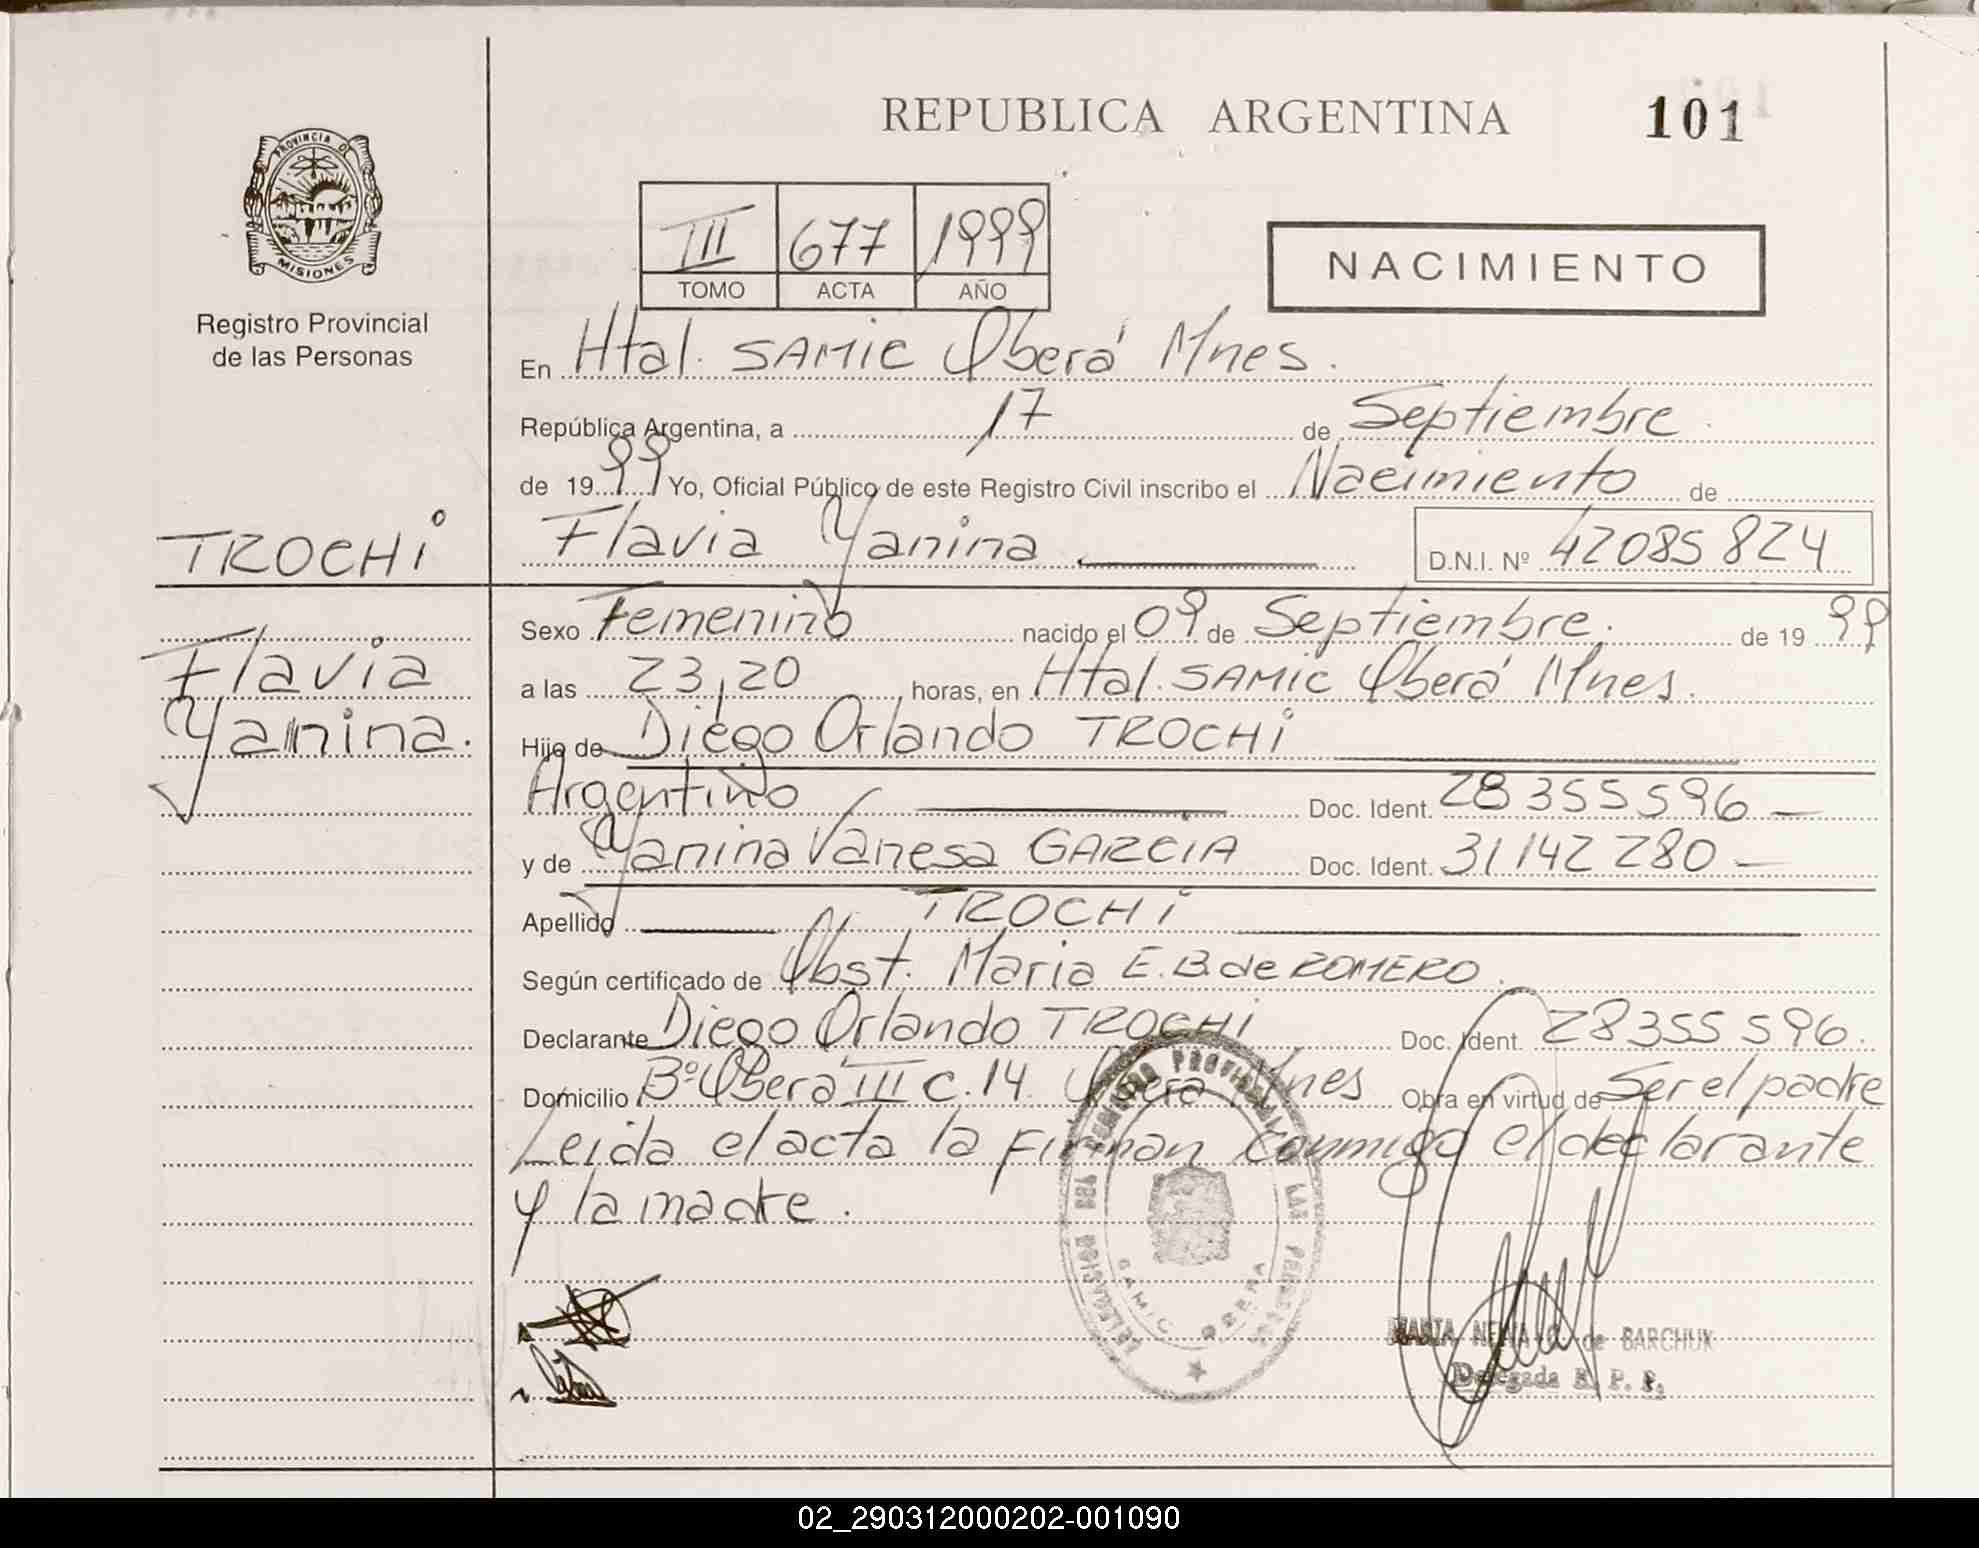 REPUBLICA ARGENTINA
101
PROVINCIA DE
MISIONES
Registro Provincial
de las Personas
III 677 1999
TOMO ACTA AÑO
NACIMIENTO
En Htal. SAMIC Oberá Mnes.
República Argentina, a 17 de Septiembre
de 1999 Yo, Oficial Público de este Registro Civil inscribo el Nacimiento de
TROCHI
Flavia Yanina D.N.I. Nº 42085824
Sexo Femenino nacido el 09 de Septiembre. de 1999
Flavia
a las 23,20 horas, en Htal. SAMIC Oberá Mnes.
Yanina.
Hijo de Diego Orlando TROCHI
Argentino Doc. Ident. 28355596
y de Yanina Vanesa GARCIA Doc. Ident. 31142280
Apellido TROCHI
Según certificado de Obst. Maria E.B. de ROMERO.
Declarante Diego Orlando TROCHI Doc. Ident. 28355596.
Domicilio Bº Oberá III C.14 Oberá Mnes Obra en virtud de Ser el padre
Leida el acta la firman conmigo el declarante
y la madre.
DELEGACION DEL REGISTRO PROVINCIAL DE LAS PERSONAS
SAMIC OBERA
de BARCHUK
Delegada R. P. P.
02_290312000202-001090